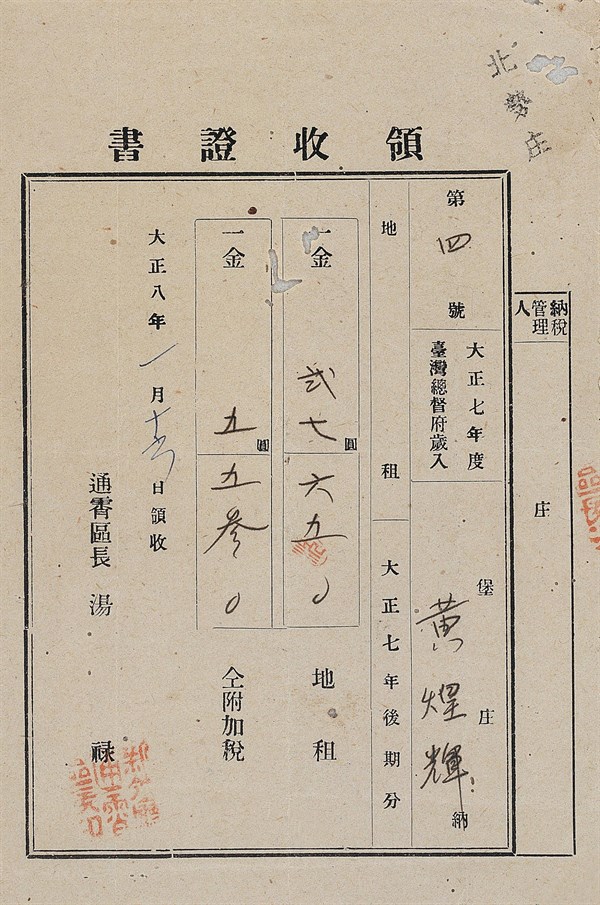 北勢庄
領收證書
納稅管理人
庄
第四號
大正七年度
臺灣總督府歲入
堡 庄
黃煌輝 納
地租 大正七年後期分
一金 弍七圓六五〇 地租
一金 五圓五參〇 仝附加稅
大正八年一月 日領收
通霄區長 湯 祿